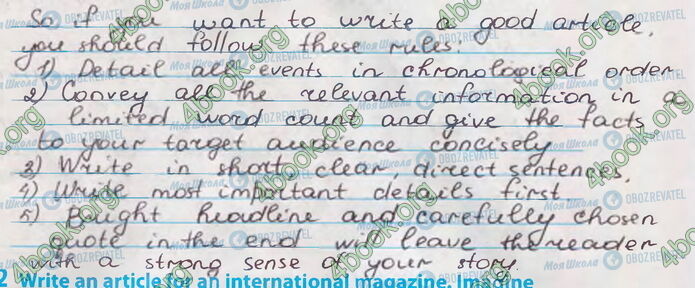 So if you want to write a good article,
you should follow these rules:
1) Detail all events in chronological order
2) Convey all the relevant information in a
limited word count and give the facts
to your target audience concisely
3) Write in short, clear, direct sentences.
4) Write most important details first
5) Baught headline and carefully chosen
quote in the end will leave the reader
with a strong sense of your story.
2 Write an article for an international magazine. Imagine